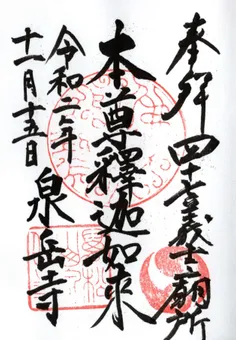 奉拝 四十七義士廟所
本尊釋迦如来
令和二年
十一月十五日
泉岳寺